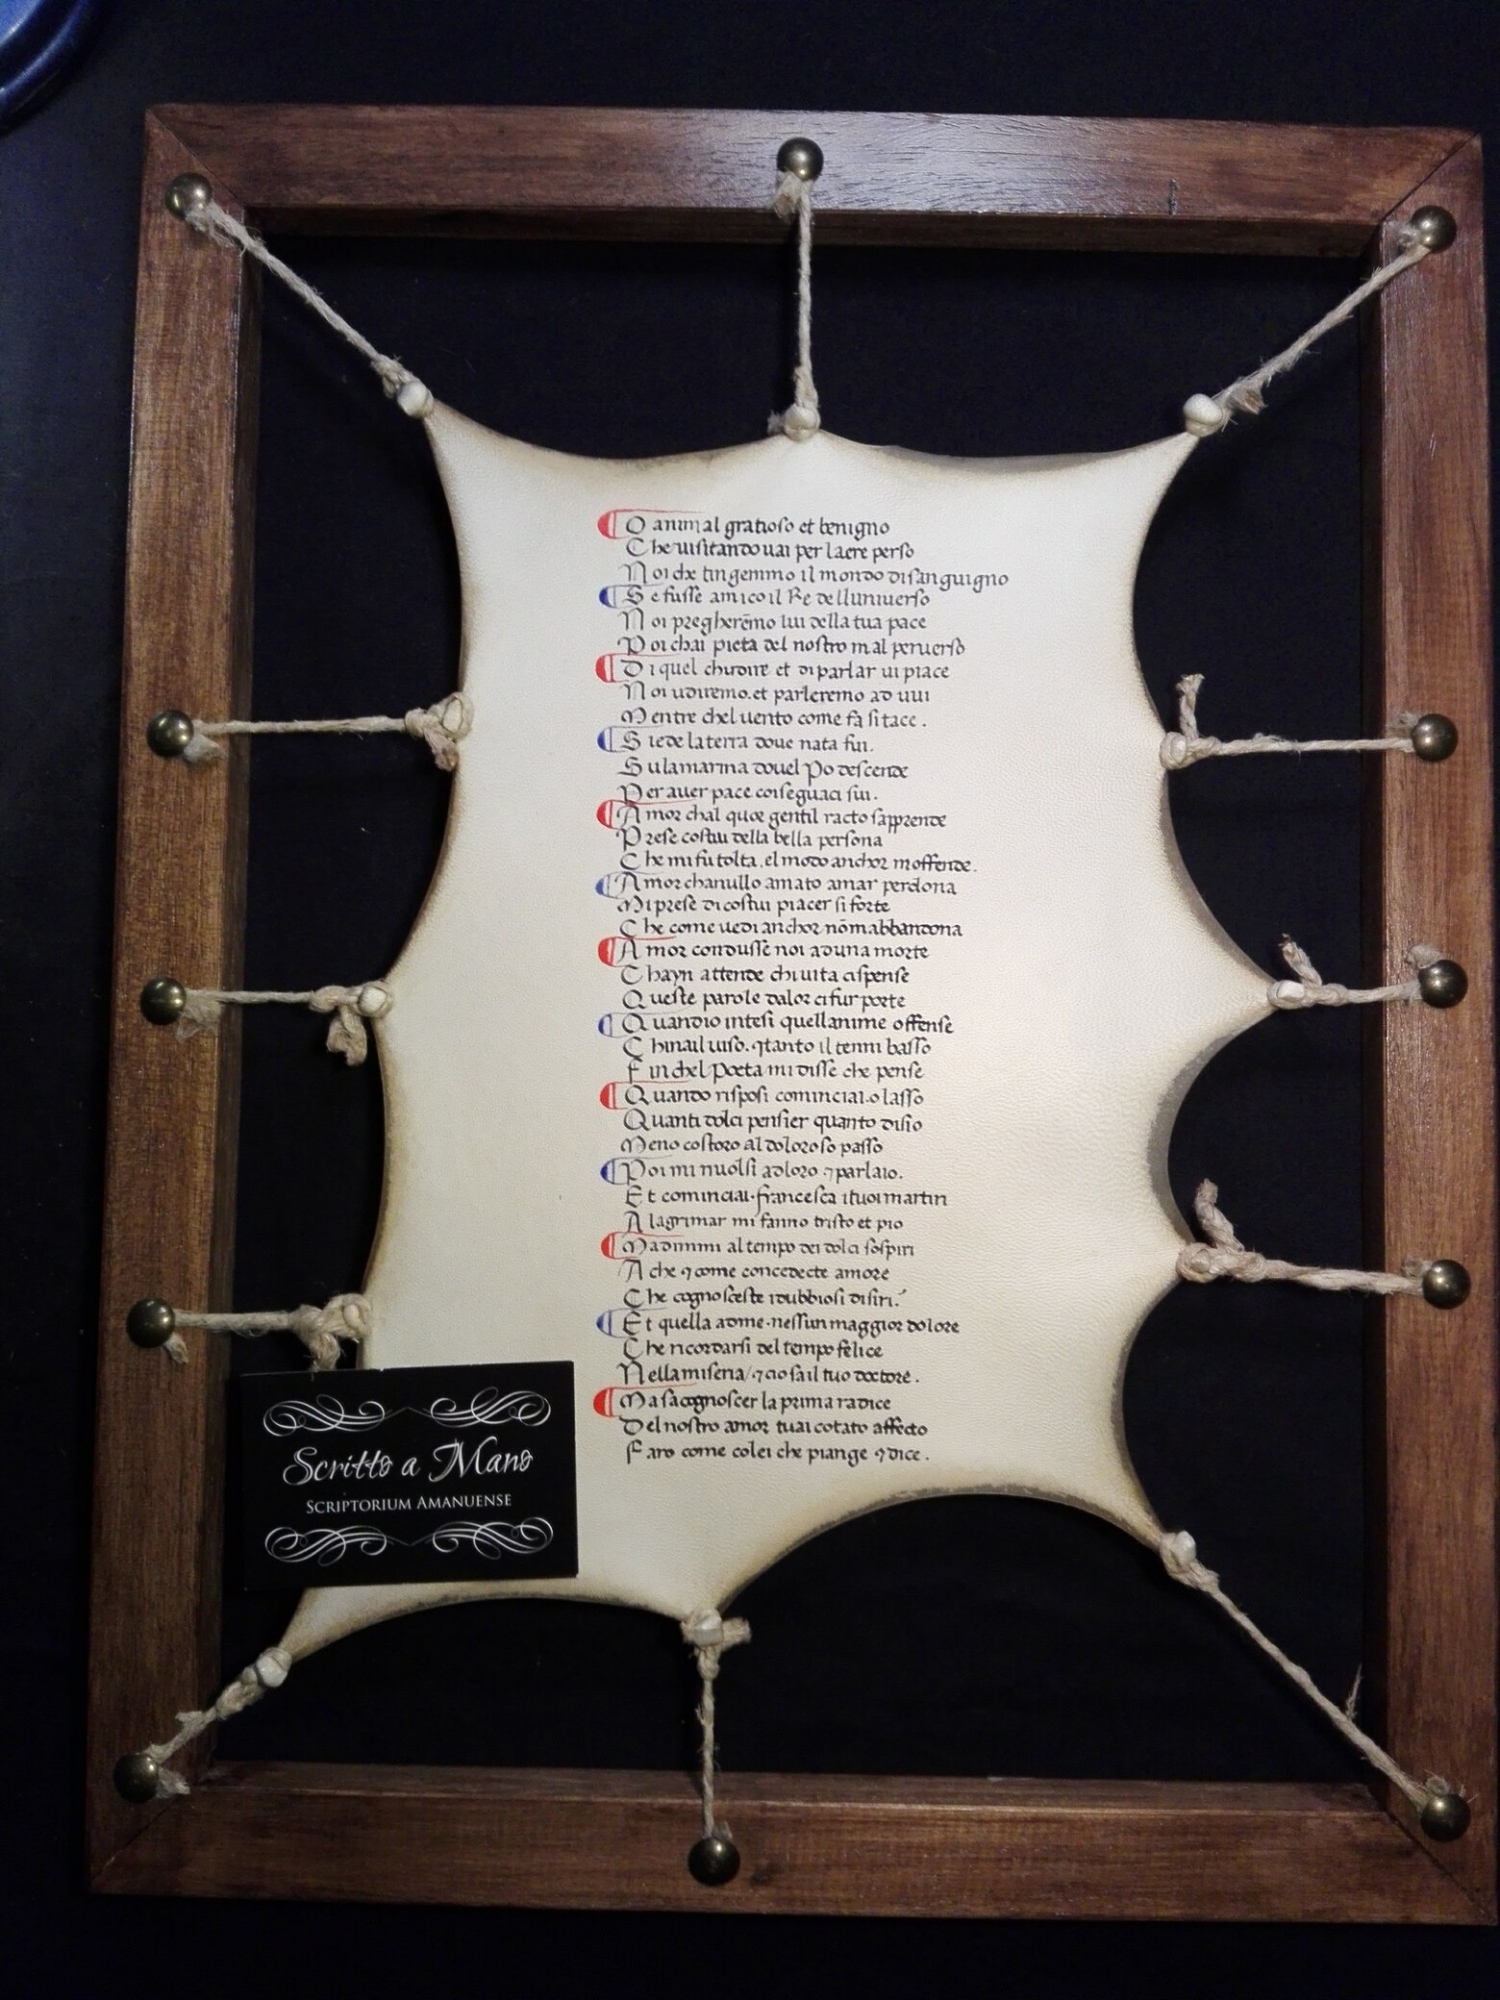 O animal gratioso et benigno
Che uisitando uai per laere perso
Noi che tingemmo il mondo disanguigno
Se fusse amico il Re delluniuerso
Noi pregherēmo lui della tua pace
Poi chai pieta del nostro mal peruerso
Di quel chudire et diparlar ui piace
Noi udiremo.et parleremo ad uui
Mentre chel uento come fa si tace.
Siede la terra doue nata fui.
Sulamarina douel Po descende
Per auer pace coiseguaci sui.
Amor chal quor gentil racto sapprende
Prese costui della bella persona
Che mi fu tolta.el modo anchor moffende.
Amor chanullo amato amar perdona
Mi prese di costui piacer si forte
Che come uedi anchor nōmabbandona
Amor condusse noi aduna morte
Chayn attende chi uita cispense
Queste parole dalor ci fur porte
Quandio intesi quellanime offense
Chinail uiso. ⁊tanto il tenni basso
Finchel Poeta mi disse che pense
Quando risposi cominciai.o lasso
Quanti dolci pensier quanto disio
Meno costoro al doloroso passo
Poi mi riuolsi adloro ⁊parlaio.
Et cominciai·francesca ituoi martiri
A lagrimar mi fanno tristo et pio
Madimmi al tempo dei dolci sospiri
A che ⁊come concedecte amore
Che cognosceste idubbiosi disiri.
Et quella adme·nessun maggior dolore
Che ricordarsi del tempo felice
Nella miseria/⁊cio sa il tuo doctore.
Ma sacognoscer la prima radice
Del nostro amor tuai cotato affecto
Faro come colei che piange ⁊dice.
Scritto a Mano
SCRIPTORIUM AMANUENSE